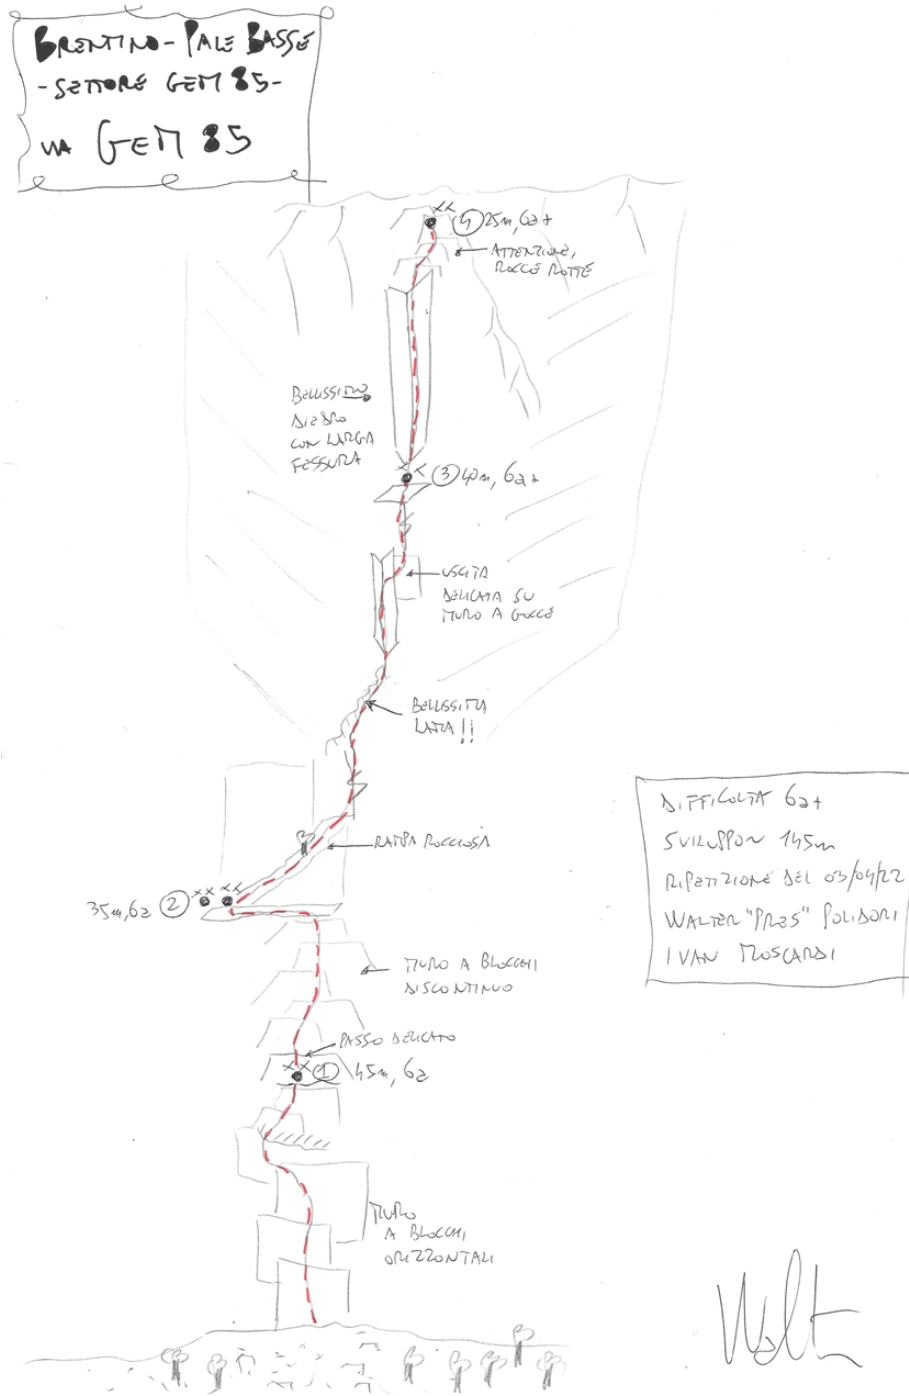 BRENTINO - PALE BASSE
- SETTORE GEM 85 -
VIA GEM 85
4 25m, 6a+
ATTENZIONE,
ROCCE ROTTE
BELLISSIMO
DIEDRO
CON LARGA
FESSURA
3 40m, 6a+
USCITA
DELICATA SU
MURO A GOCCE
BELLISSIMA
LAMA!!
RAMPA ROCCIOSA
35m, 6a 2
MURO A BLOCCHI
DISCONTINUO
PASSO DELICATO
1 45m, 6a
MURO
A BLOCCHI
ORIZZONTALI
DIFFICOLTÀ 6a+
145m
RIPETIZIONE DEL 03/04/22
WALTER "PRES" POLIDORI
IVAN MOSCARDI
Walt